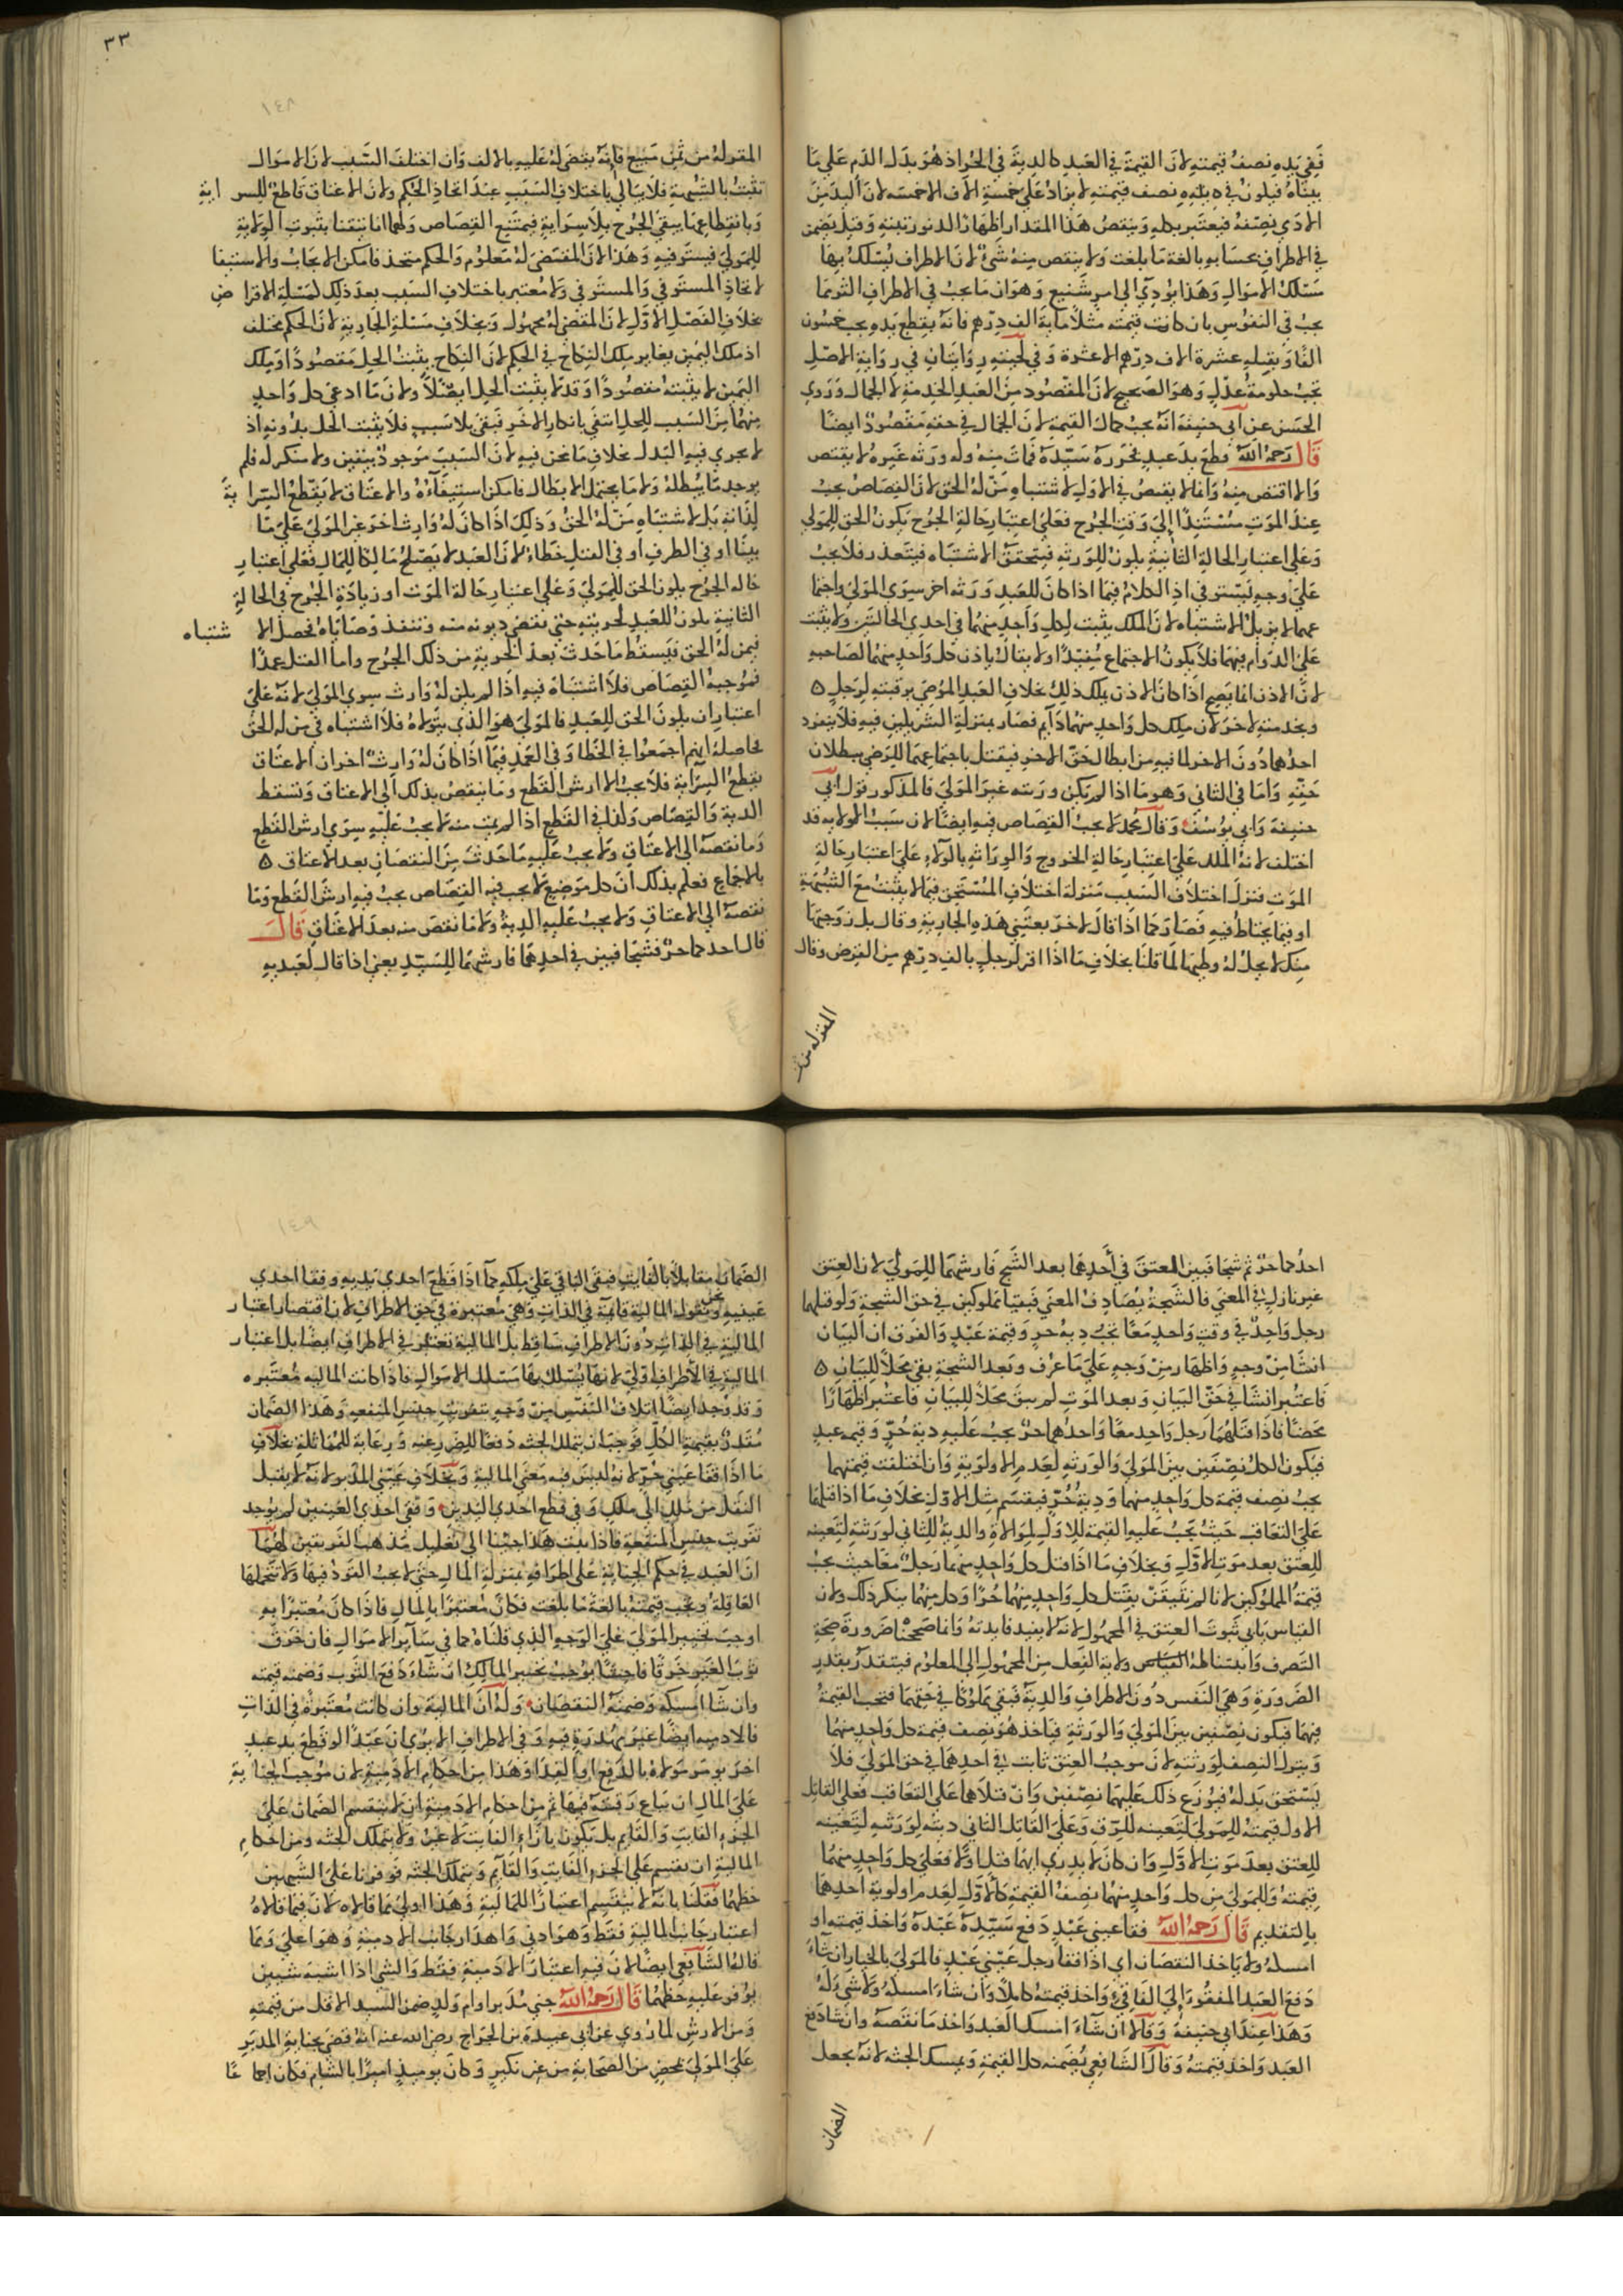 ففي يده نصف قيمته لان القيمة في العبد كالدية في الحر اذ هو بدل الدم على ما
بيناه فيكون في يده نصف قيمته لا يزاد على خمسة الاف الا خمسة لان اليد من
الادمي نصفه فيعتبر بكله وينقص هذا المقدار اظهارا لدنو رتبته وقيل يضمن
في الاطراف بحسابه بالغة ما بلغت ولا ينقص منه شئ لان الاطراف يسلك بها
مسلك الاموال وهذا يؤدي الى امر شنيع وهو ان ما يجب في الاطراف اكثر مما
يجب في النفوس بان كانت قيمته مثلا ماية الف درهم فانه بقطع يده يجب خمسون
الفا وبقتله عشرة الاف درهم الا عشرة وفي لحيته روايتان في رواية الاصل
تجب حكومة عدل وهو الصحيح لان المقصود من العبد الخدمة لا الجمال وروي
الحسن عن ابي حنيفة انه يجب كمال القيمة لان الجمال في حقه مقصود ايضا
قال رحمه الله قطع يد عبد فحرره سيده فمات منه وله ورثه غيره لا يقتص
والا اقتص منه وانما لا يقتص في الاول لاشتباه من له الحق لان القصاص يجب
عند الموت مستندا الى وقت الجرح فعلى اعتبار حالة الجرح يكون الحق للمولى
وعلى اعتبار الحالة الثانية يكون للورثه فيتحقق الاشتباه فيتعذر فلا يجب
على وجه يستوفي اذ الكلام فيما اذا كان للعبد ورثه اخر سوى المولى واجتما
عهما لا يزيل الاشتباه لان الملك يثبت لكل واحد منهما في احدي الحالتين ولا يثبت
على الدوام فيهما فلا يكون الاجتماع مفيدا ولا يقال ياذن كل واحد منهما لصاحبه
لان الاذن انما يصح اذا كان الاذن يملك ذلك بخلاف العبد الموصى برقبته لرجل
وبخدمته لاخر لان ملك كل واحد منهما دايم فصار بمنزلة الشريكين فيه فلا ينفرد
احدهما دون الاخر لما فيه من ابطال حق الاخر فيقتل باجتماعهما للرضى ببطلان
حقه واما في الثاني وهو ما اذا لم يكن ورثه غير المولى فالمذكور قول ابي
حنيفة وابي يوسف وقال محمد لا يجب القصاص فيه ايضا لان سبب الولايه قد
اختلف لانه الملك على اعتبار حالة الجروح والوراثه بالولاء على اعتبار حالة
الموت فنزل اختلاف السبب منزلة اختلاف المستحق فيما لا يثبت مع الشبهة
او فيما يحتاط فيه فصار كما اذا قال لاخر بعتني هذه الجارية وقال بل زوجتها
منك لا يحل له وطيها لما قلنا بخلاف ما اذا اقر لرجل بالف درهم من القرض وقال
المقر له من ثمن
٣٣
١٤٨
المقر له من ثمن مبيع فانه يقضى له عليه بالالف وان اختلف السبب لان الاموال
تثبت بالشبهة فلا يبالي باختلاف السبب عند اتحاد الحكم ولان الاعتاق قاطع للسر اية
وبانقطاعها يبقى الجرح بلا سراية فيمتنع القصاص ولهما انا تيقنا بثبوت الولاية
للمولى فيستوفيه وهذا لان المقضي له معلوم والحكم متحد فامكن الايجاب والاستيفا
لاتحاد المستوفي والمستوفي ولا معتبر باختلاف السبب بعد ذلك لمسئلة الاقرا ض
بخلاف الفصل الاول لان المقضي له مجهول وبخلاف مسئلة الجارية لان الحكم مختلف
اذ ملك اليمين يغاير ملك النكاح في الحكم لان النكاح يثبت الحل مقصودا وملك
اليمين لا يثبته مقصودا وقد لا يثبت الحل اصلا ولان ما ادعى كل واحد
منهما من السبب للحل انتفى بانكار الاخر فبقي بلا سبب فلا يثبت الحل بدونه اذ
لا يجري فيه البدل بخلاف ما نحن فيه لان السبب موجود بيقين ولا منكر له فلم
يوجد ما يبطله ولا ما يحتمل الابطال فامكن استيفاؤه والاعتاق لا يقطع السرا ية
لذاته بل لاشتباه من له الحق وذلك اذا كان له وارث اخر غير المولى على ما
بينا او في الطرف او في القتل خطاء لان العبد لا يصلح مالكا للمال فعلى اعتبار
حاله الجرح يكون الحق للمولى وعلى اعتبار حالة الموت او زيادة الجرح في الحالة
الثانية يكون للعبد لحريته حتى تقضى ديونه منه وتنفذ وصاياه فحصل الا شتباه
فيمن له الحق فيسقط ما حدث بعد الحرية من ذلك الجرح واما القتل عمدا
فموجبه القصاص فلا اشتباه فيه اذا لم يكن له وارث سوى المولى لانه على
اعتبار ان يكون الحق للعبد فالمولى هو الذي يتولاه فلا اشتباه في من له الحق
فحاصله انهم اجمعوا في الخطا وفي العمد فيما اذا كان له وارث اخر ان الاعتاق
يقطع السراية فلا يجب الا ارش القطع وما ينقص بذلك الى الاعتاق وتسقط
الدية والقصاص وكذا في القطع اذا لم يمت منه لا يجب عليه سوى ارش القطع
وما نقصه الى الاعتاق ولا يجب عليه ما حدث من النقصان بعد الاعتاق
بالاجماع فعلم بذلك ان كل موضع لا يجب فيه القصاص يجب فيه ارش القطع وما
نقصه الى الاعتاق ولا يجب عليه الدية ولا ما نقص منه بعد الاعتاق قال
قال احدكما حر فشجا فبين في احدهما فارشهما للسيد يعني اذا قال لعبديه
احدكما حر ثم شجا فبين العتق في احدهما بعد الشج فارشهما للمولى لان العتق
غير نازل في المعنى فالشجة تصادف المعني فبقيا مملوكين في حق الشجة ولو قتلهما
رجل واحد في وقت واحد معا تجب دية حر وقيمة عبد والفرق ان البيان
انشا من وجه واظهار من وجه على ما عرف وبعد الشجة بقى محلا للبيان
فاعتبر انشا في حق البيان وبعد الموت لم يبق محلا للبيان فاعتبر اظهارا
محضا فاذا قتلهما رجل واحد معا واحدهما حر يجب عليه دية حر وقيمه عبد
فيكون الكل نصفين بين المولى والورثه لعدم الاولوية وان اختلفت قيمتهما
يجب نصف قيمة كل واحد منهما ودية حر فيقسم مثل الاول بخلاف ما اذا قتلهما
على التعاقب حيث يجب عليه القيمة للاول لمولاه والدية للثاني لورثته لتعينه
للعتق بعد موت الاول وبخلاف ما اذا قتل كل واحد منهما رجل معا حيث يجب
قيمة المملوكين لانا لم نتيقن بقتل كل واحد منهما حرا وكل منهما ينكر ذلك ولان
القياس يابي ثبوت العتق في المجهول لانه لا يفيد فايدته وانما صححناه ضرورة صحة
التصرف واثبتنا له ولاية النقل من المجهول الى المعلوم فيتقدر بقدر
الضرورة وهي النفس دون الاطراف والدية فبقي مملوكا في حقهما فتجب القيمة
فيهما فيكون نصفين بين المولى والورثة فياخذ هو نصف قيمة كل واحد منهما
ويترك النصف لورثته لان موجب العتق ثابت في احدهما في حق المولى فلا
يستحق بدله فيوزع ذلك عليهما نصفين وان قتلاهما على التعاقب فعلى القاتل
الاول قيمته للمولى لتعينه للرق وعلى القاتل الثاني ديته لورثته لتعينه
للعتق بعد موت الاول وان كان لا يدري ايهما قتل اولا فعلى كل واحد منهما
قيمته وللمولى من كل واحد منهما نصف القيمة كالاول لعدم اولوية احدهما
بالتقديم قال رحمه الله فقا عيني عبد دفع سيده عبده واخذ قيمته او
امسكه ولا ياخذ النقصان اي اذا فقا رجل عيني عبد فالمولى بالخيار ان شاء
دفع العبد المفقوء الى الفاقي واخذ قيمته كاملا وان شاء امسكه ولا شئ له
وهذا عند ابي حنيفة وقالا ان شاء امسك العبد واخذ ما نقصه وان شا دفع
العبد واخذ قيمته وقال الشافعي يضمنه كل القيمة ويمسك الجثة لانه يجعل
الضمان
١٤٩
الضمان مقابلا بالفايت فبقى الباقي على ملكه كما اذا قطع احدى يديه وفقا احدى
عينيه ونحن نقول المالية قايمة في الذات وهي معتبرة في حق الاطراف لان اقتصار اعتبار
المالية في الذات دون الاطراف ساقط بل المالية تعتبر في الاطراف ايضا بل اعتبار
المالية في الاطراف اولى لانها يسلك بها مسلك الاموال فاذا كانت المالية معتبره
وقد وجد ايضا اتلاف النفس من وجه بتفويت جنس المنفعه وهذا الضمان
مقدر بقيمة الكل فوجب ان يتملك الجثه دفعا للضرر عنه ورعاية للمماثلة بخلاف
ما اذا فقا عيني حر لانه ليس فيه معنى المالية وبخلاف عيني المدبر لانه لا يقبل
النقل من ملك الى ملك وفي قطع احدى اليدين وفقئ احدى العينين لم يوجد
تفويت جنس المنفعة فاذا ثبت هذا جينا الى تعليل مذهب الفريقين لهما
ان العبد في حكم الجناية على اطرافه بمنزلة المال حتى لا يجب القود فيها ولا تتحملها
العاقلة وتجب قيمته بالغة ما بلغت فكان معتبرا بالمال فاذا كان معتبرا به
اوجب تخيير المولى على الوجه الذي قلناه كما في ساير الاموال فان خرق
ثوب الغير خرقا فاحشا يوجب تخيير المالك ان شاء دفع الثوب وضمنه قيمته
وان شا امسكه وضمنه النقصان وله ان المالية وان كانت معتبرة في الذات
فالادميه ايضا غير مهدرة فيه وفي الاطراف الا يرى ان عبدا لو قطع يد عبد
اخر يومر مولاه بالدفع او الفدا وهذا من احكام الادمية لان موجب الجنا ية
على المال ان تباع رقبته فيها ثم من احكام الادمية ان لا ينقسم الضمان على
الجزء الفايت والقايم بل يكون بازاء الفايت لا غير ولا يتملك الجثه ومن احكام
المالية ان يقسم على الجزء الفايت والقايم ويتملك الجثه فوفرنا على الشبهين
حظهما فقلنا بانه لا ينقسم اعتبارا للمالية وهذا اولى مما قالاه لان فيما قالاه
اعتبار جانب المالية فقط وهو ادنى واهدار جانب الادمية وهو اعلى ومما
قاله الشافعي ايضا لان فيه اعتبار الادمية فقط والشي اذا اشبه شيين
يوفر عليه حظهما قال رحمه الله جنى مدبر او ام ولد ضمن السيد الاقل من قيمته
ومن الارش لما روي عن ابي عبيدة بن الجراح رضي الله عنه انه قضى بجناية المدبر
على المولى بمحضر من الصحابة من غير نكير وكان يوميذ اميرا بالشام فكان اجما عا